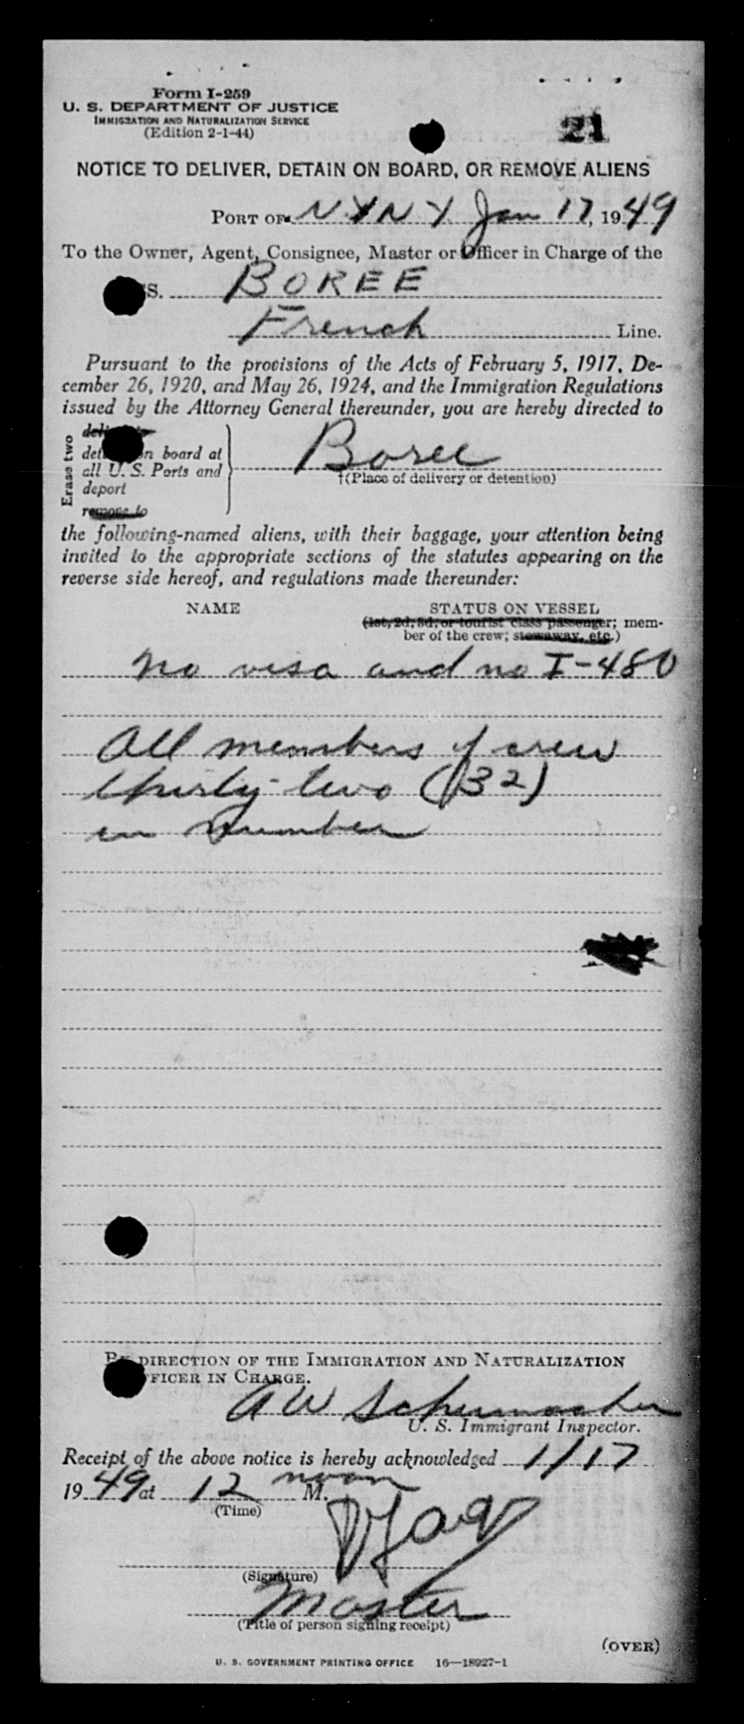 Form I-259
U. S. DEPARTMENT OF JUSTICE
IMMIGRATION AND NATURALIZATION SERVICE
(Edition 2-1-44)
21
NOTICE TO DELIVER, DETAIN ON BOARD, OR REMOVE ALIENS
PORT OF N.Y.N.Y Jan 17, 1949
To the Owner, Agent, Consignee, Master or Officer in Charge of the
SS. BOREE
French Line.
Pursuant to the provisions of the Acts of February 5, 1917, De-
cember 26, 1920, and May 26, 1924, and the Immigration Regulations
issued by the Attorney General thereunder, you are hereby directed to
Erase two
on board at
all U. S. Ports and
deport
remove to
Boree
†(Place of delivery or detention)
the following-named aliens, with their baggage, your attention being
invited to the appropriate sections of the statutes appearing on the
reverse side hereof, and regulations made thereunder:
NAME STATUS ON VESSEL
(1st, 2d, 3d, or tourist class passenger; mem-
ber of the crew; stowaway, etc.)
No visa and no I-480
All members of crew
thirty-two (32)
in number
BY DIRECTION OF THE IMMIGRATION AND NATURALIZATION
OFFICER IN CHARGE.
A W Schumacher
U. S. Immigrant Inspector.
Receipt of the above notice is hereby acknowledged 1/17
1949 at 12 noon M.
(Time)
(Signature)
Master
(Title of person signing receipt)
(OVER)
U. S. GOVERNMENT PRINTING OFFICE 16—18927-1